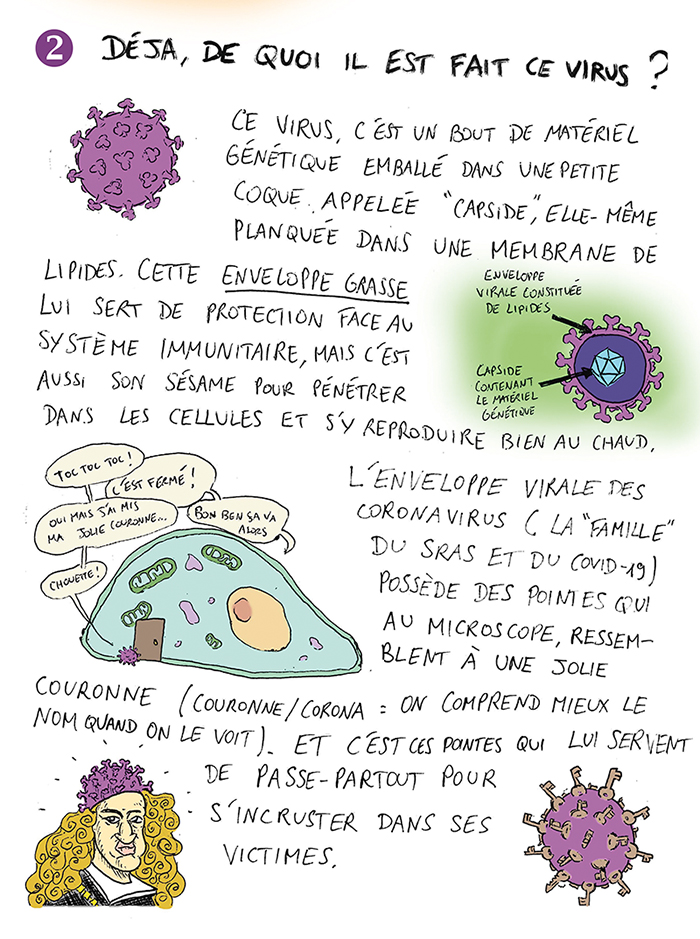 2 DÉJA, DE QUOI IL EST FAIT CE VIRUS ?
CE VIRUS, C'EST UN BOUT DE MATÉRIEL
GÉNÉTIQUE EMBALLÉ DANS UNE PETITE
COQUE APPELÉE "CAPSIDE", ELLE-MÊME
PLANQUÉE DANS UNE MEMBRANE DE
LIPIDES. CETTE ENVELOPPE GRASSE
LUI SERT DE PROTECTION FACE AU
SYSTÈME IMMUNITAIRE, MAIS C'EST
AUSSI SON SÉSAME POUR PÉNÉTRER
DANS LES CELLULES ET S'Y REPRODUIRE BIEN AU CHAUD.
ENVELOPPE
VIRALE CONSTITUÉE
DE LIPIDES
CAPSIDE
CONTENANT
LE MATÉRIEL
GÉNÉTIQUE
TOC TOC TOC !
C'EST FERMÉ !
OUI MAIS J'AI MIS
MA JOLIE COURONNE...
BON BEN ÇA VA
ALORS
CHOUETTE !
L'ENVELOPPE VIRALE DES
CORONAVIRUS ( LA "FAMILLE"
DU SRAS ET DU COVID-19)
POSSÈDE DES POINTES QUI
AU MICROSCOPE, RESSEM-
BLENT À UNE JOLIE
COURONNE (COURONNE/CORONA = ON COMPREND MIEUX LE
NOM QUAND ON LE VOIT). ET C'EST CES POINTES QUI LUI SERVENT
DE PASSE-PARTOUT POUR
S'INCRUSTER DANS SES
VICTIMES.